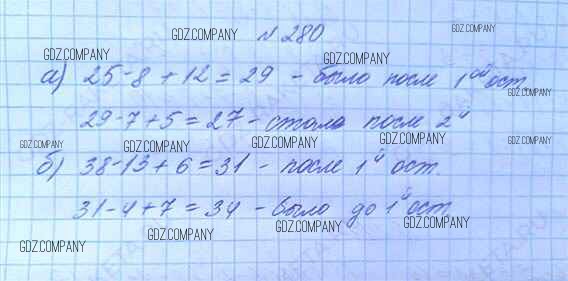 № 280
а) 25-8+12=29 - было после 1ой ост
29-7+5=27 - стало после 2й
б) 38-13+6=31 - после 1й ост.
31-4+7=34 - было до 1й ост
GDZ.COMPANY
GDZ.COMPANY
GDZ.COMPANY
GDZ.COMPANY
GDZ.COMPANY
GDZ.COMPANY
GDZ.COMPANY
GDZ.COMPANY
GDZ.COMPANY
GDZ.COMPANY
GDZ.COMPANY
GDZ.COMPANY
GDZ.COMPANY